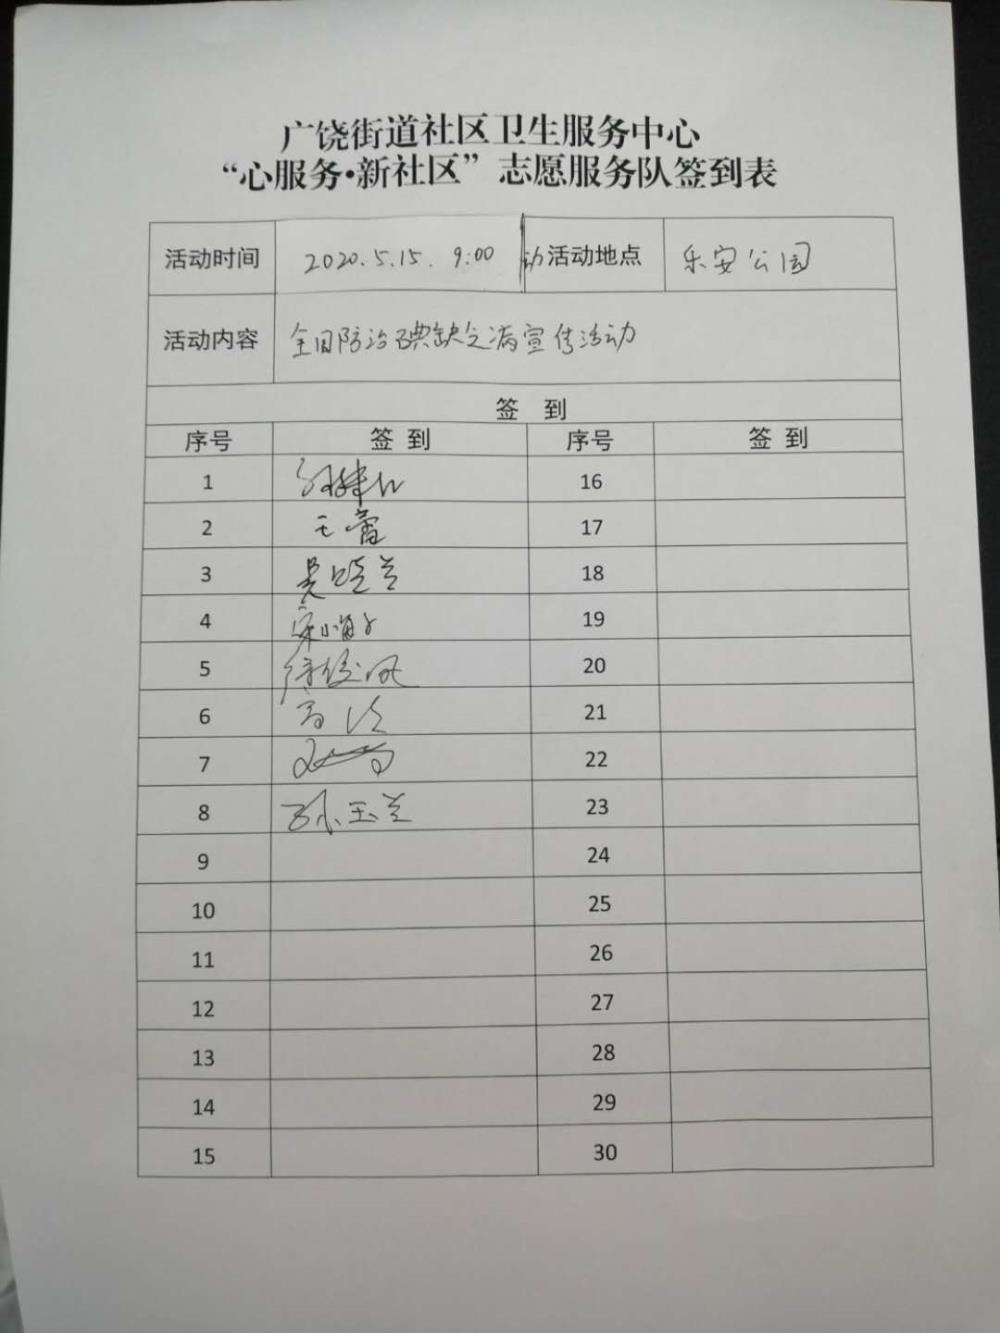 广饶街道社区卫生服务中心
“心服务·新社区”志愿服务队签到表
活动时间 2020.5.15. 9:00 动 活动地点 乐安公园
活动内容 全国防治碘缺乏病宣传活动
签 到
序号 签 到 序号 签 到
1 16
2 王蕾 17
3 吴晓兰 18
4 19
5 20
6 高 21
7 22
8 孙玉兰 23
9 24
10 25
11 26
12 27
13 28
14 29
15 30